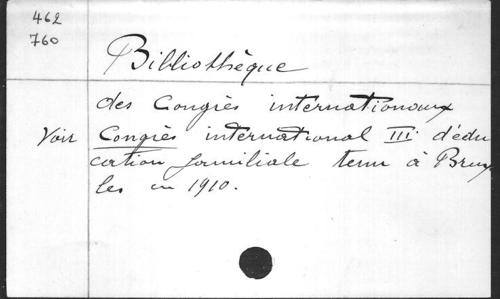 462
760
Bibliothèque
des Congrès internationaux
Voir Congrès international III. d'édu
cation familiale tenu à Brux
les en 1910.